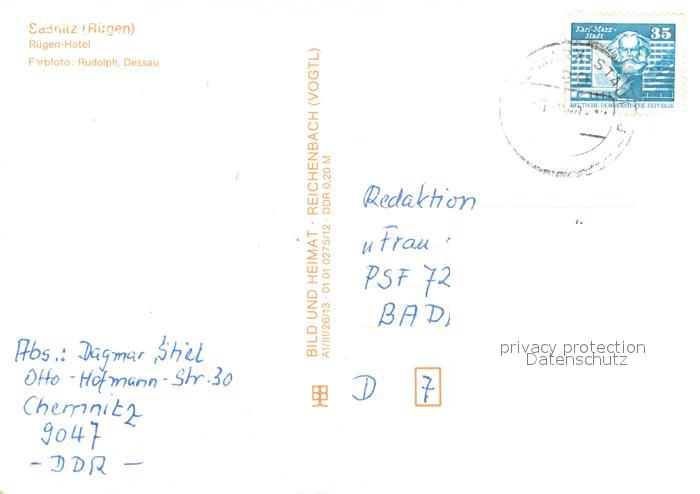 Saßnitz (Rügen)
Rügen-Hotel
Farbfoto: Rudolph, Dessau
Karl-Marx-
Stadt
35
DEUTSCHE DEMOKRATISCHE REPUBLIK
BILD UND HEIMAT · REICHENBACH (VOGTL)
A1/III/26/13 · 01 01 0275/12 · DDR 0,20 M
Redaktion
„Frau “
PSF 72
BAD
privacy protection
Datenschutz
Abs.: Dagmar Stiel
Otto-Hofmann-Str. 30
Chemnitz
9047
- DDR -
D 7